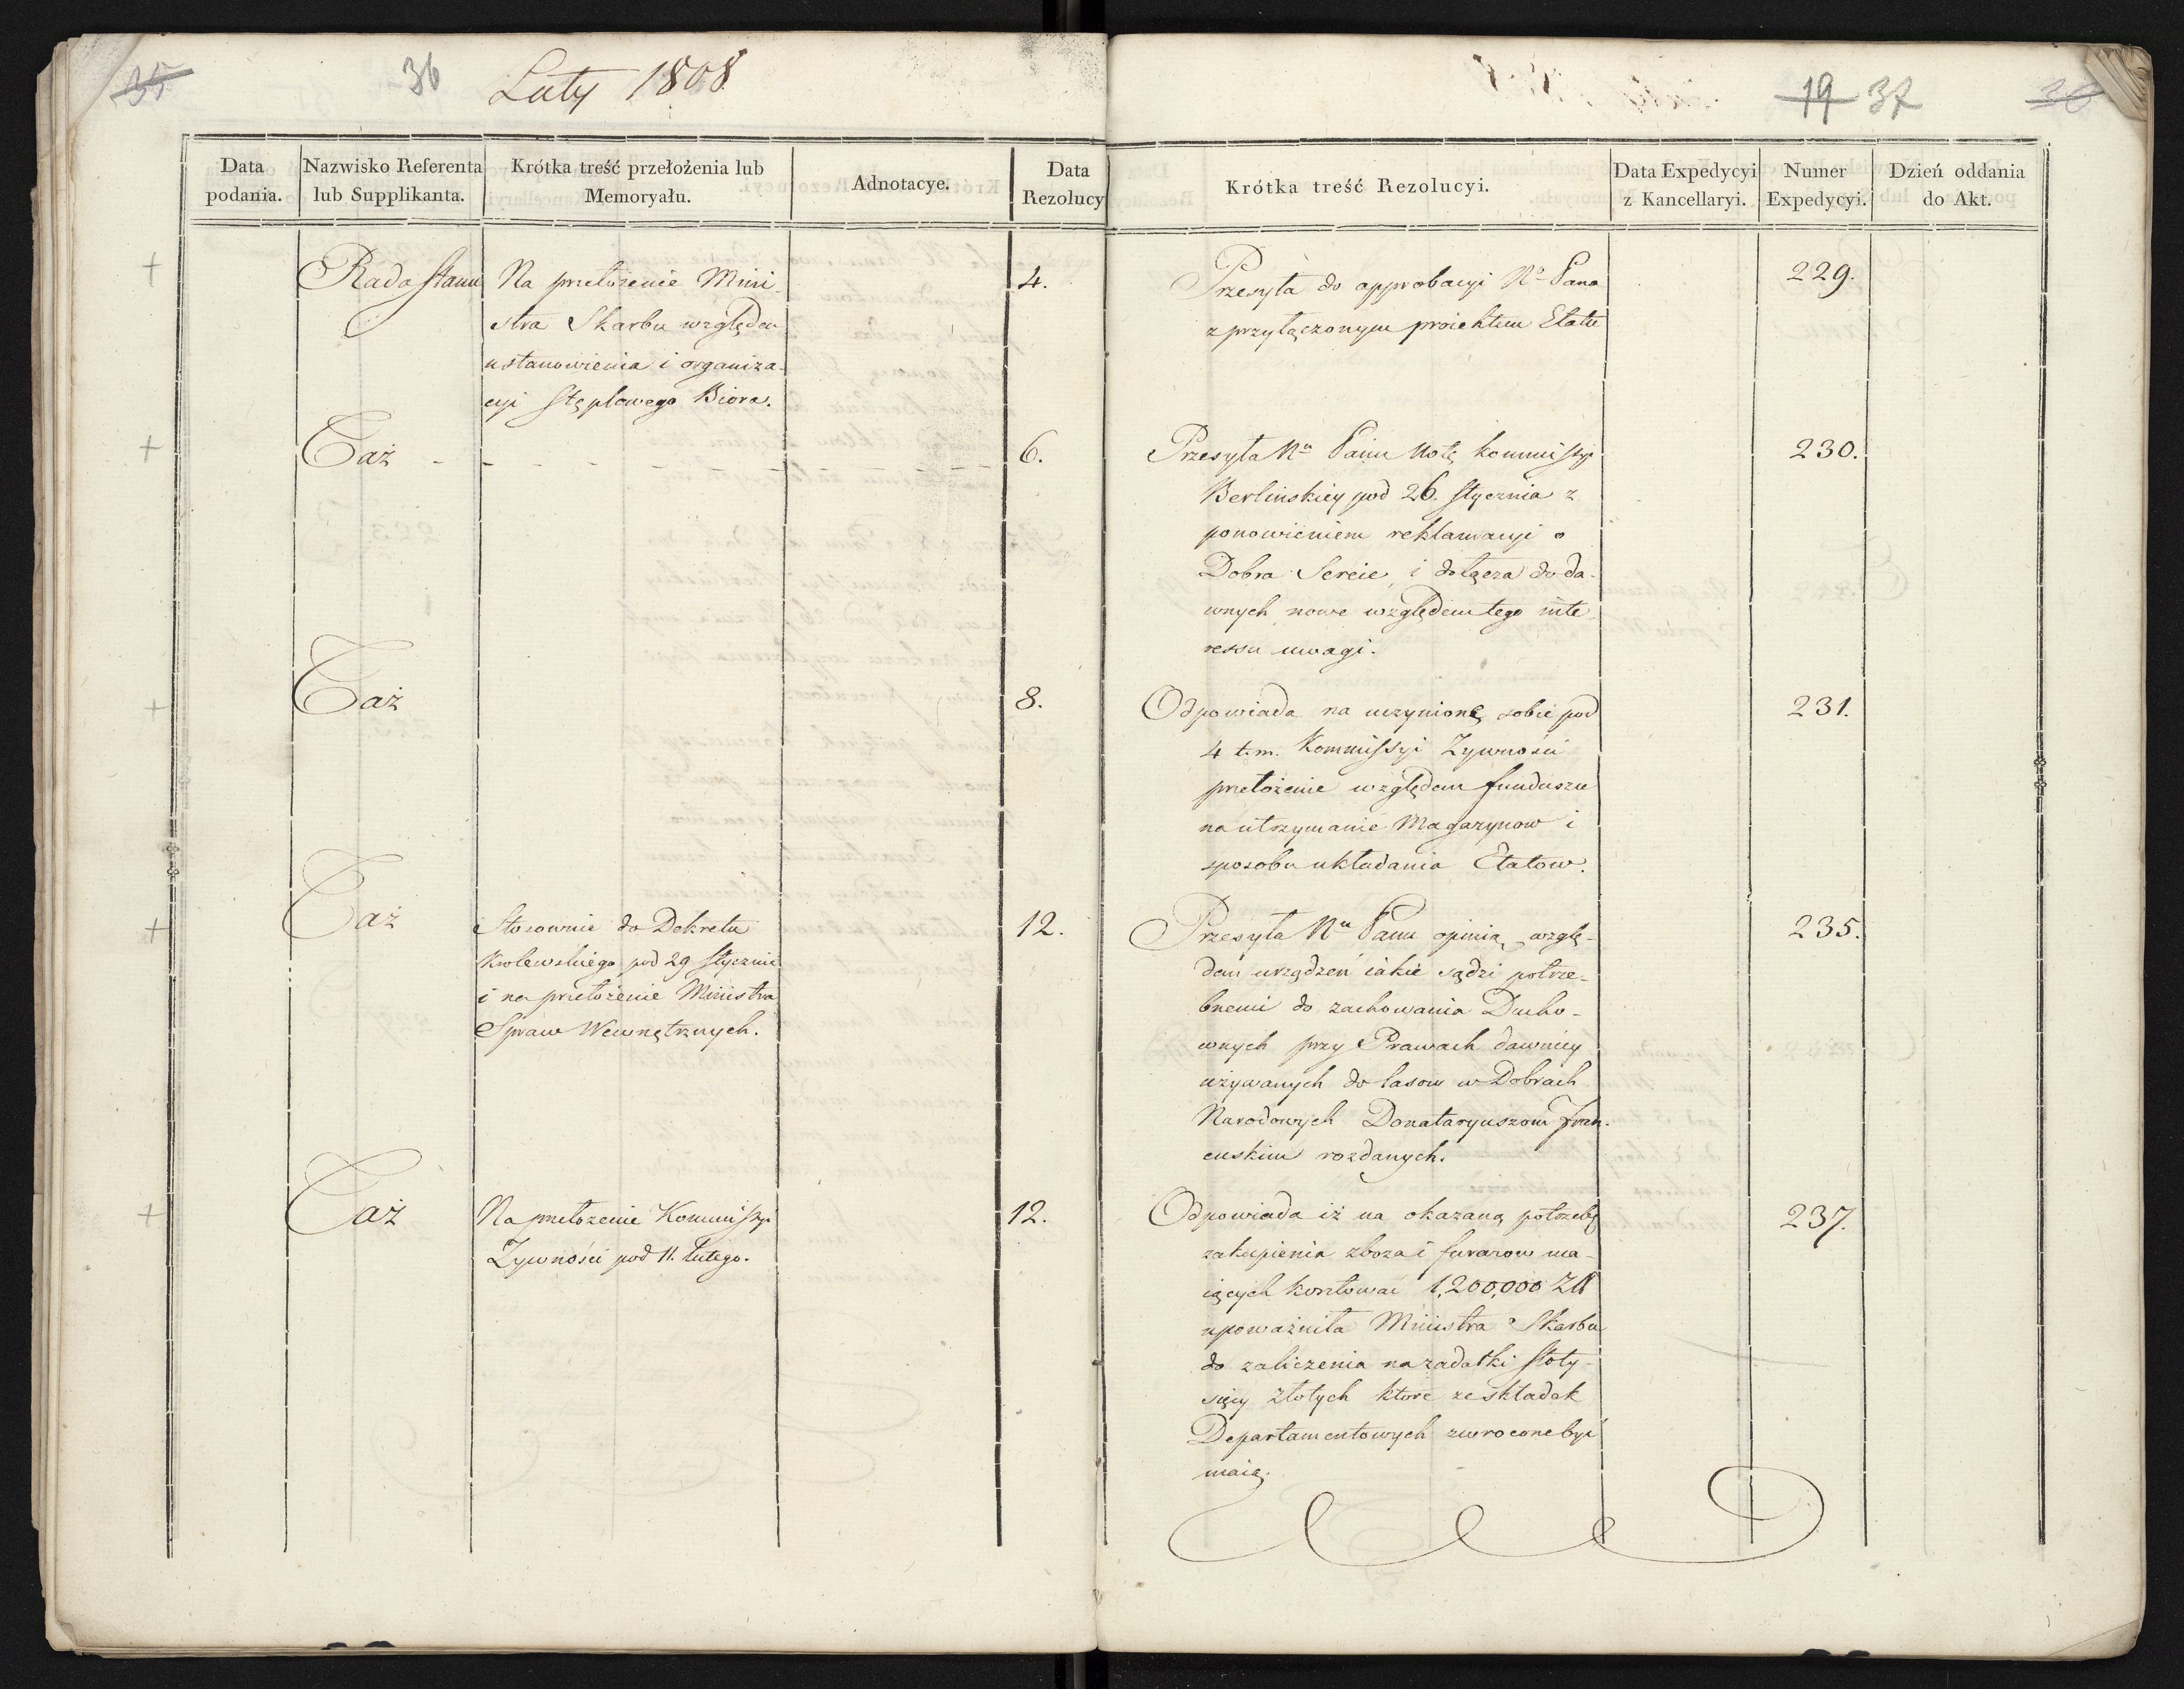 35 36 Luty 1808.
19 37 36
Data podania.
Nazwisko Referenta lub Supplikanta.
Krótka treść przełożenia lub Memoryału.
Adnotacye.
Data Rezolucyi
Krótka treść Rezolucyi.
Data Expedycyi z Kancellaryi.
Numer Expedycyi.
Dzień oddania do Akt.
+ Rada Stanu
Na przełożenie Mini-
stra Skarbu względem
ustanowienia i organiza-
cyi Stęplowego Biora.
4.
Przesyła do approbacyi No Pana
z przyłączonym proiektem Etatu
229.
+ Taż - - - - - - - - - - - -
6.
Przesyła Nu Panu Notę kommissyi
Berlinskiey pod 26. Stycznia z
ponowieniem reklamacyi o
Dobra Sereie, i dołącza do da-
wnych nowe względem tego inte-
ressu uwagi.
230.
+ Taż
8.
Odpowiada na uczynione sobie pod
4 t. m. Kommissyi Zywności
przełożenie względem funduszu
na utrzymanie Magazynow i
sposobu układania Etatow.
231.
+ Taż
Stosownie do Dekretu
Krolewskiego pod 29 Stycznia
i na przełożenie Ministra
Spraw Wewnętrznych.
12.
Przesyła Nu Panu opinią wzglę-
dem urządzeń iakie sądzi potrze-
bnemi do zachowania Ducho-
wnych przy Prawach dawniey
używanych do lasow w Dobrach
Narodowych Donataryuszom Fran-
cuskim rozdanych.
235.
+ Taż
Na przełozenie Kommissyi
Zywności pod 11. Lutego.
12.
Odpowiada iż na okazaną potrzebę
zakupienia zboża i furazow ma-
iących kosztować 1,200,000 Zł
upoważniła Ministra Skarbu
do zaliczenia na zadatki stoty-
sięcy złotych ktore ze składek
Departamentowych zwrocone być
maią.
237.